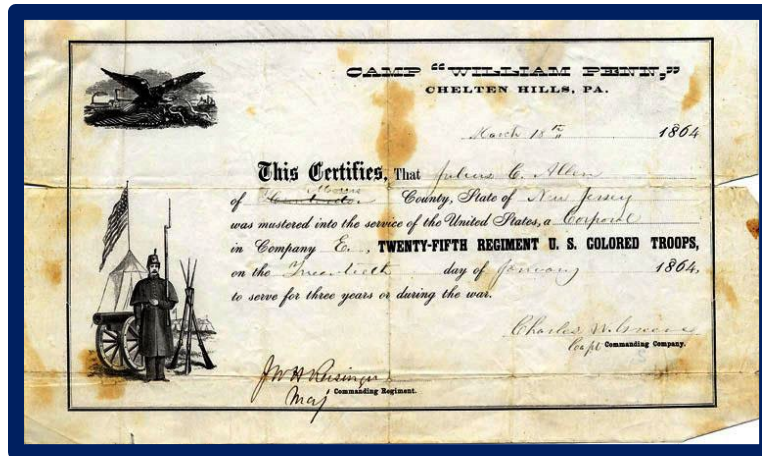 CAMP "WILLIAM PENN,"
CHELTEN HILLS, PA.
March 18th 1864
This Certifies, That Julius C. Allen
of Morris County, State of New Jersey
was mustered into the service of the United States, a Corporal
in Company E., TWENTY-FIFTH REGIMENT U. S. COLORED TROOPS,
on the day of January 1864,
to serve for three years or during the war.
Charles W.
Capt Commanding Company.
J W H Reisinger
Maj Commanding Regiment.